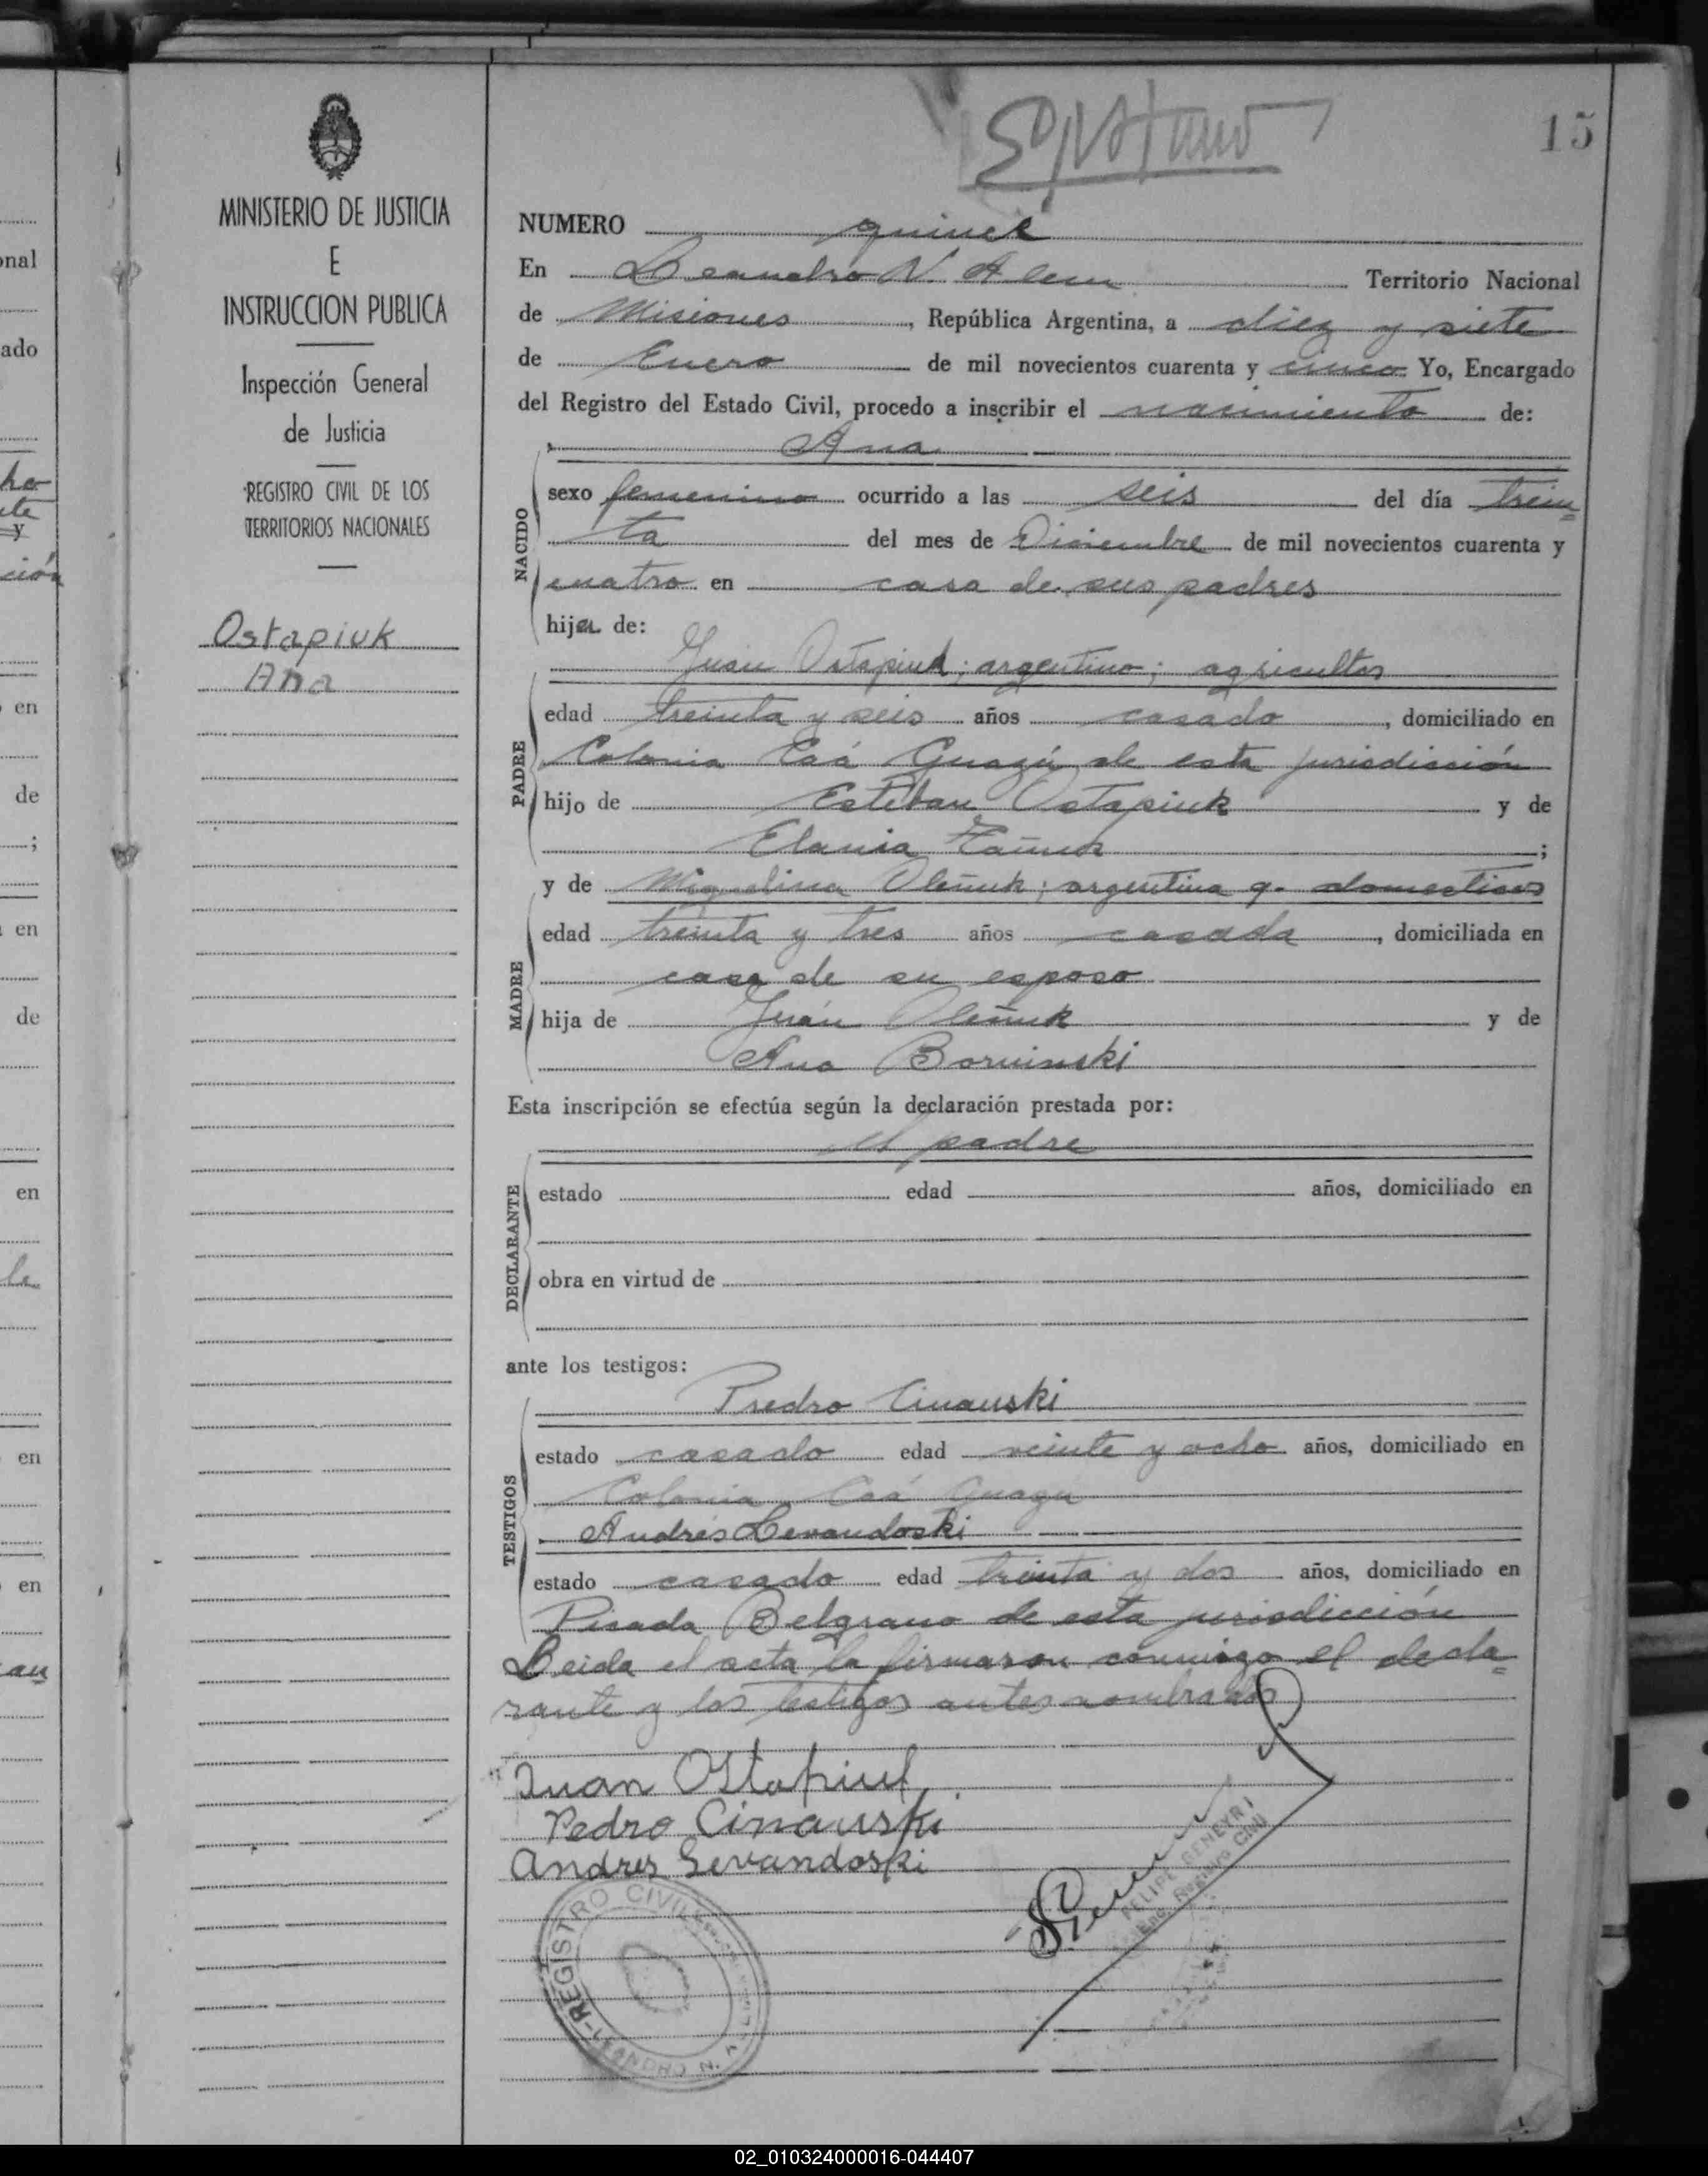 15
MINISTERIO DE JUSTICIA
E
INSTRUCCION PUBLICA
Inspección General
de Justicia
REGISTRO CIVIL DE LOS
TERRITORIOS NACIONALES
Ostapiuk
Ana
NUMERO quince
En Leandro N. Alem Territorio Nacional
de Misiones, República Argentina, a diez y siete
de Enero de mil novecientos cuarenta y cinco Yo, Encargado
del Registro del Estado Civil, procedo a inscribir el nacimiento de:
Ana
NACIDO
sexo femenino ocurrido a las seis del día trein=
ta del mes de Diciembre de mil novecientos cuarenta y
cuatro en casa de sus padres
hija de:
Juan Ostapiuk; argentino; agricultor
PADRE
edad treinta y seis años casado, domiciliado en
Colonia Caá Guazú de esta jurisdicción
hijo de Esteban Ostapiuk y de
;
y de Miguelina Oleñuk; argentina q. domesticos
MADRE
edad treinta y tres años casada, domiciliada en
casa de su esposo
hija de Juan Oleñuk y de
Ana
Esta inscripción se efectúa según la declaración prestada por:
el padre
DECLARANTE
estado edad años, domiciliado en
obra en virtud de
ante los testigos:
Predro Cinauski
TESTIGOS
estado casado edad veinte y ocho años, domiciliado en
Colonia Caá Guazu
Andrés Levandoski
estado casado edad treinta y dos años, domiciliado en
Picada Belgrano de esta jurisdicción
Leida el acta la firmaron conmigo el decla=
rante y los testigos antes nombrados
Juan Ostapiuk
Pedro Cinauski
Andres Levandoski
FELIPE GENEYRI
Enc. Registro Civil
REGISTRO CIVIL
LEANDRO N. A
onal
ado
ción
en
de
;
en
de
en
en
en
02_010324000016-044407